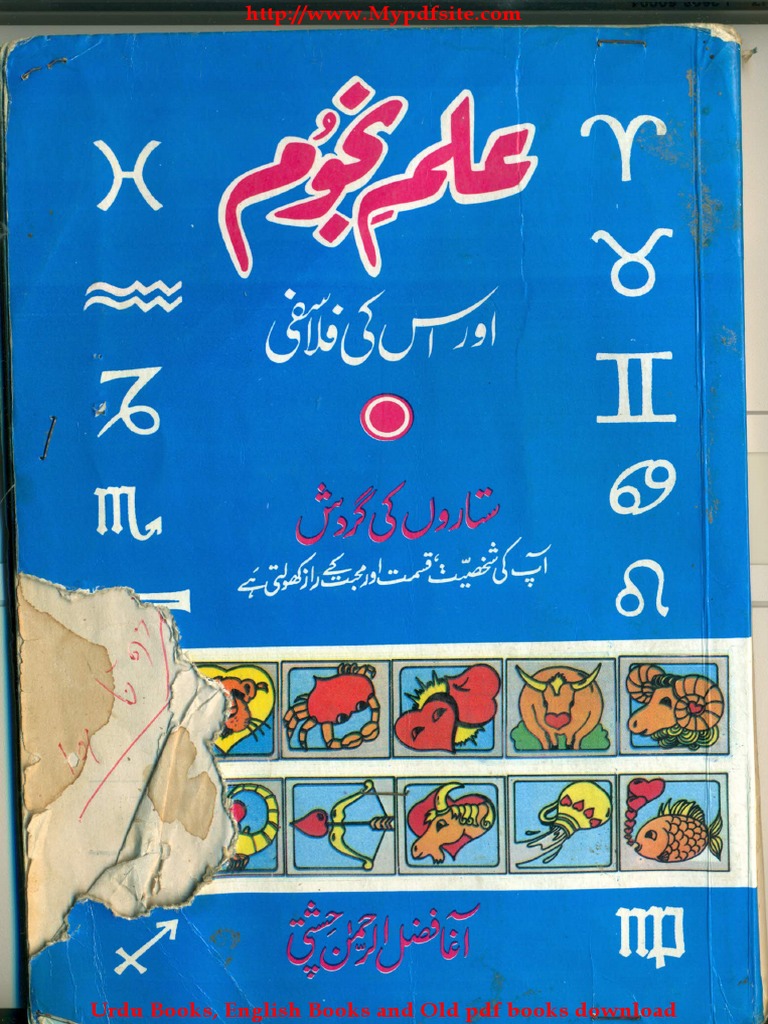 http://www.Mypdfsite.com
علمِ نجوُم
اور اس کی فلاسفی
ستاروں کی گردش
آپ کی شخصیّت، قسمت اور محبت کے راز کھولتی ہَے
آغا فضل الرحمٰن چشتی
Urdu Books, English Books and Old pdf books download